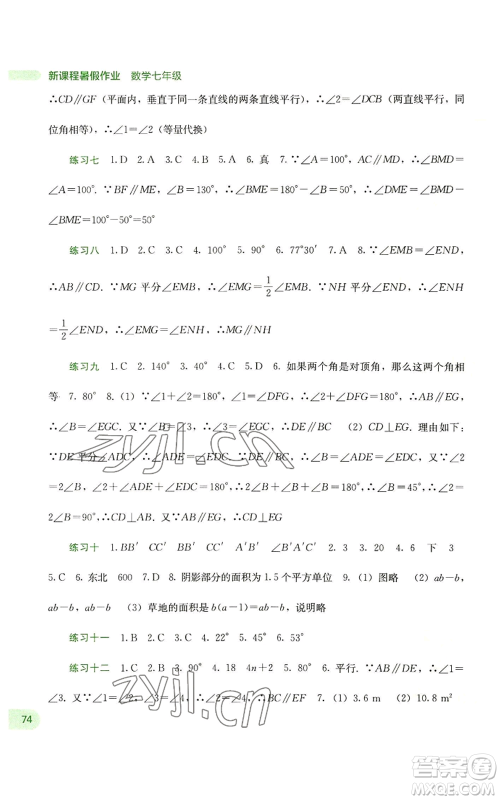 新课程暑假作业 数学七年级
∴CD∥GF（平面内，垂直于同一条直线的两条直线平行），∴∠2=∠DCB（两直线平行，同
位角相等），∴∠1=∠2（等量代换）
练习七 1. D 2. A 3. C 4. B 5. A 6. 真 7. ∵∠A=100°，AC∥MD，∴∠BMD=
∠A=100°. ∵BF∥ME，∠B=130°，∴∠BME=180°-∠B=50°，∴∠DME=∠BMD-
∠BME=100°-50°=50°
练习八 1. D 2. B 3. C 4. 100° 5. 90° 6. 77°30′ 7. A 8. ∵∠EMB=∠END，
∴AB∥CD. ∵MG平分∠EMB，∴∠EMG=1/2∠EMB. ∵NH平分∠END，∴∠ENH
=1/2∠END，∴∠EMG=∠ENH，∴MG∥NH
练习九 1. C 2. 140° 3. 40° 4. C 5. D 6. 如果两个角是对顶角，那么这两个角相
等 7. 80° 8.（1）∵∠1+∠2=180°，∠1=∠DFG，∴∠2+∠DFG=180°，∴AB∥EG，
∴∠B=∠EGC. 又∵∠B=∠3，∴∠3=∠EGC，∴DE∥BC （2）CD⊥EG. 理由如下：
∵DE平分∠ADC，∴∠ADE=∠EDC. ∵DE∥BC，∴∠B=∠ADE=∠EDC. 又∵∠2=
2∠B，∠2+∠ADE+∠EDC=180°，∴2∠B+∠B+∠B=180°，∴∠B=45°，∴∠2=
2∠B=90°，∴CD⊥AB. 又∵AB∥EG，∴CD⊥EG
练习十 1. BB′ CC′ BB′ CC′ A′B′ ∠A′B′C′ 2. 3 3. 20 4. 6 下 3
5. C 6. 东北 600 7. D 8. 阴影部分的面积为1.5个平方单位 9.（1）图略 （2）ab-b，
ab-b，ab-b （3）草地的面积是b(a-1)=ab-b，说明略
练习十一 1. B 2. C 3. C 4. 22° 5. 45° 6. 53°
练习十二 1. D 2. B 3. 90° 4. 18 4n+2 5. 80° 6. 平行. ∵AB∥DE，∴∠1=
∠3. 又∵∠1=∠2，∠3=∠4，∴∠2=∠4，∴BC∥EF 7.（1）3.6 m （2）10.8 m²
74
zyjl.cn
zyjl.cn